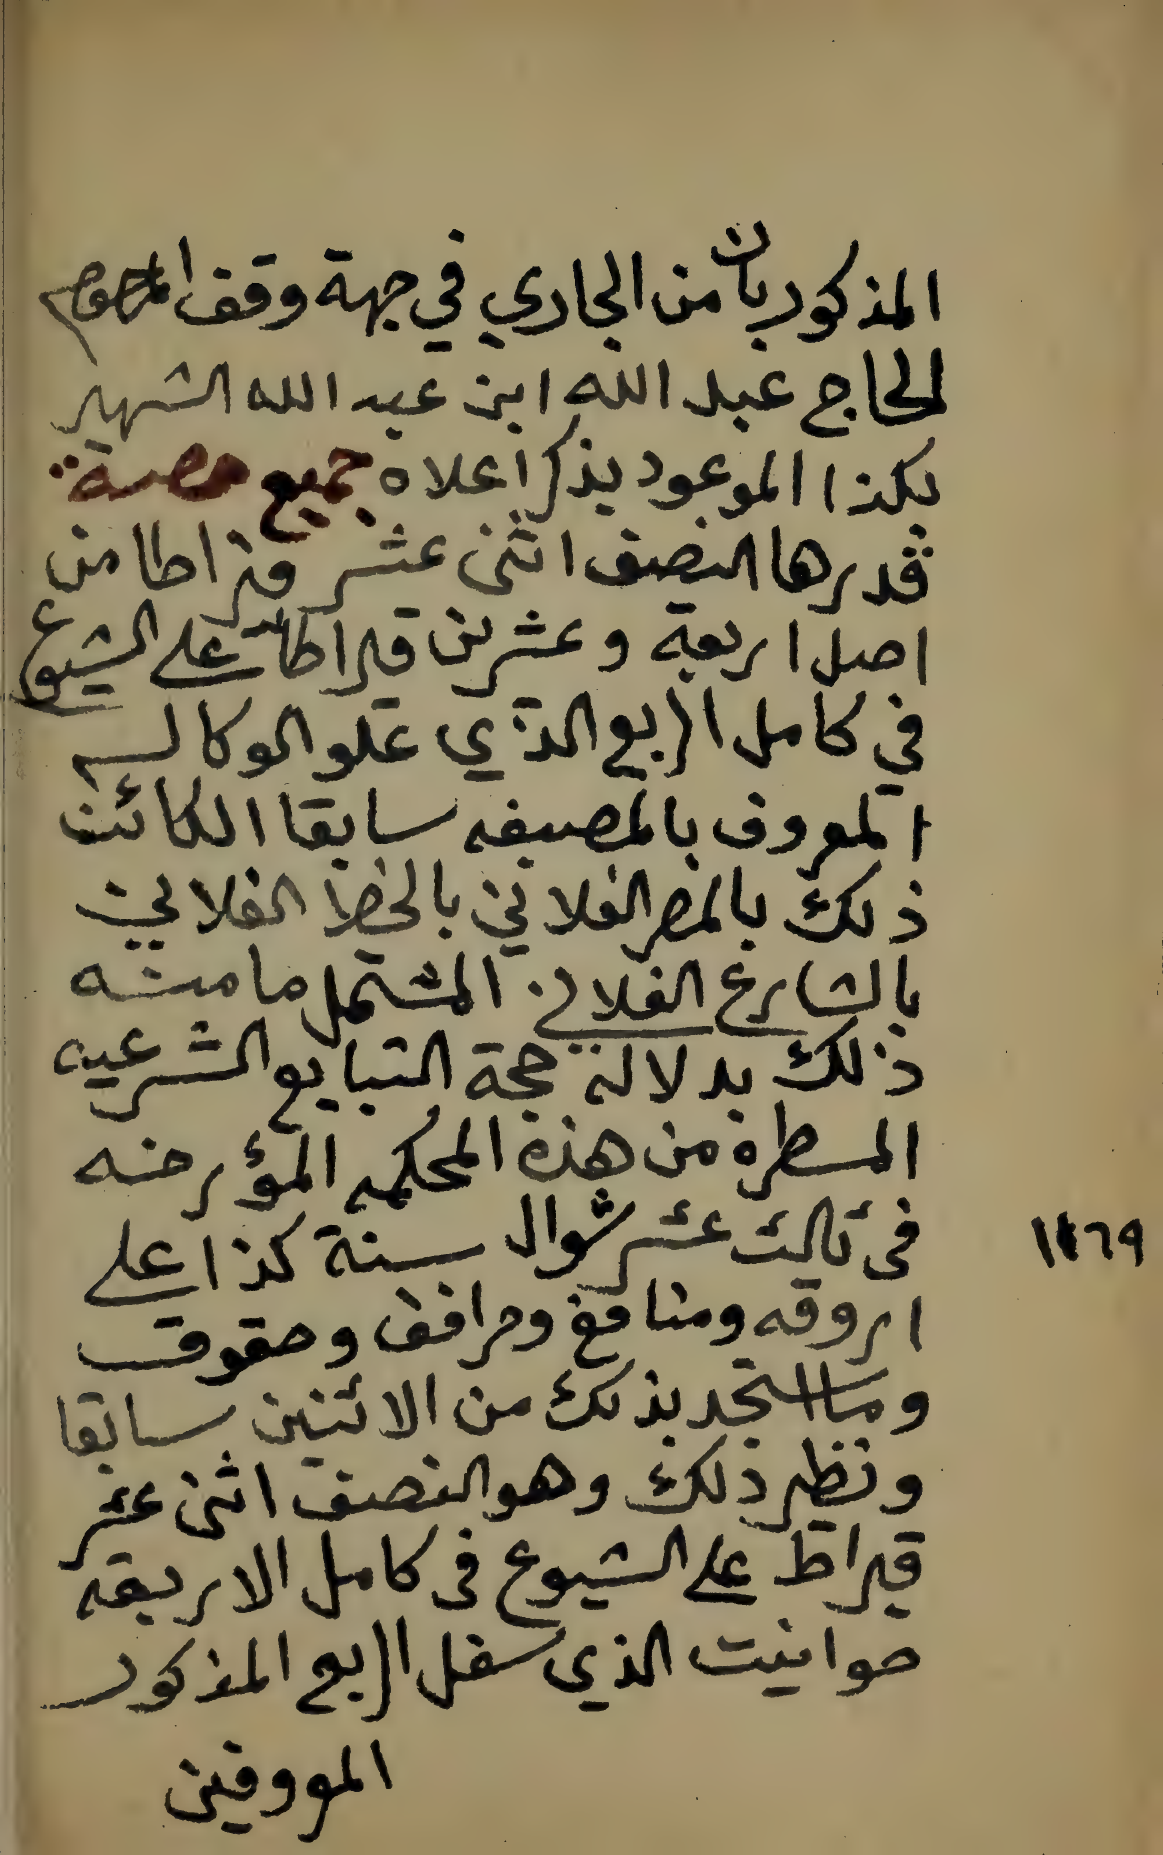 المذكوربان من الجاري في جهة وقف المرحوم
الحاج عبد الله ابن عبد الله الشهير
بكذا الموعود بذكر اعلاه جميع حصة
قدرها النصف اثنى عشر قيراطا من
اصل اربعة وعشرين قيراطا على الشيوع
في كامل الربع الذي علو الوكاله
المعروف بالمصبغه سابقا الكائن
ذلك بالمصر الفلاني بالخط الفلاني
بالشارع الفلاني المشتمل ما منه
ذلك بدلالة حجة التبايع الشرعيه
المسطرة من هذه المحكمه المؤرخه
فى ثالث عشر شوال سنة كذا على
١١٦٩
اروقه ومنافع ومرافق وحقوق
وما استجد بذلك من الاثنين سابقا
ونظير ذلك وهو النصف اثنى عشر
قيراط على الشيوع فى كامل الاربعه
حوانيت الذي سفل الربع المذكور
المعروفين